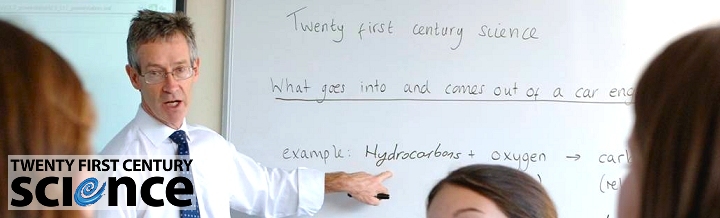 Twenty first century science
What goes into and comes out of a car eng
example: Hydrocarbons + oxygen → carb
(re
TWENTY FIRST CENTURY
science